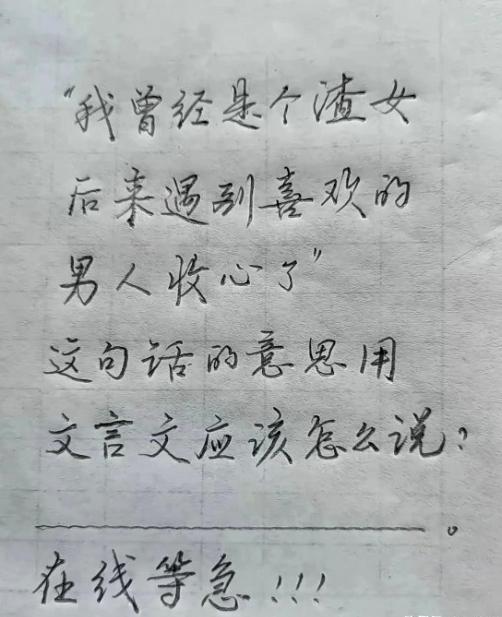 "我曾经是个渣女
后来遇到喜欢的
男人收心了"
这句话的意思用
文言文应该怎么说?
。
在线等急!!!